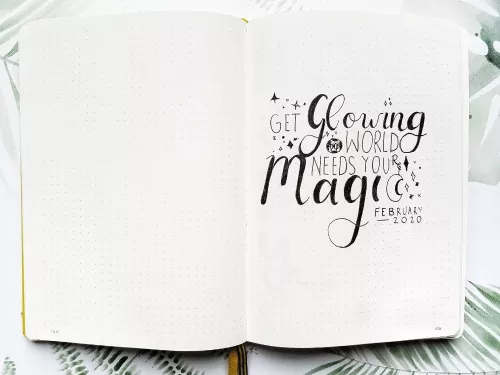 GET Glowing
THE WORLD
NEEDS YOUR
Magic
FEBRUARY
2020